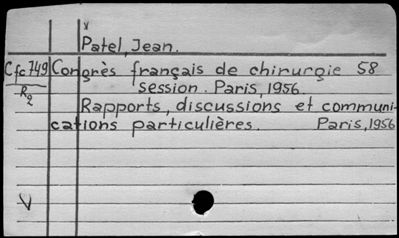 v
Patel, Jean.
Cfc 749 Congrès français de chirurgie 58
R2 session. Paris, 1956.
Rapports, discussions et communi-
cations particulières. Paris, 1956
V